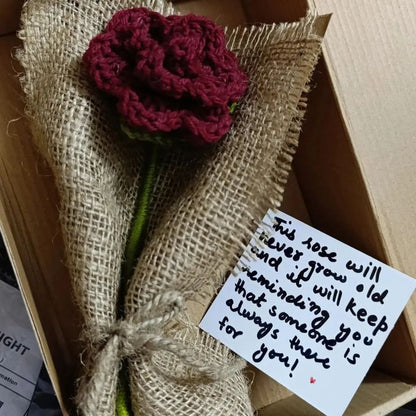 This rose will
never grow old
and it will keep
reminding you
that someone is
always there
for you!
IGHT